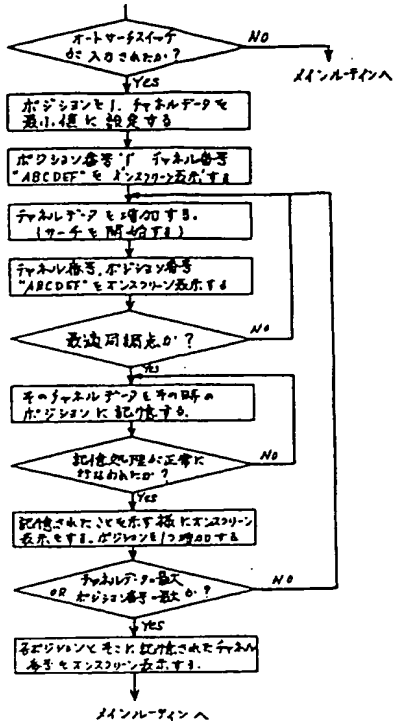 オートサーチスイッチ
が入力されたか?
NO
メインルーティンへ
Yes
ポジションを1、チャネルデータを
最小値に設定する
ポジション番号"1" チャネル番号
"ABCDEF"をオンスクリーン表示する
チャネルデータを増加する.
(サーチを開始する)
チャネル番号,ポジション番号
"ABCDEF"をオンスクリーン表示する
最適同調点か?
NO
Yes
そのチャネルデータをその時の
ポジションに記憶する.
記憶処理が正常に
行なわれたか?
NO
Yes
記憶されたことを示す様にオンスクリーン
表示をする.ポジションを1つ増加する
チャネルデータ=最大
OR ポジション番号=最大か?
NO
YES
各ポジションとそこに記憶されたチャネル
番号をオンスクリーン表示する.
メインルーティンへ